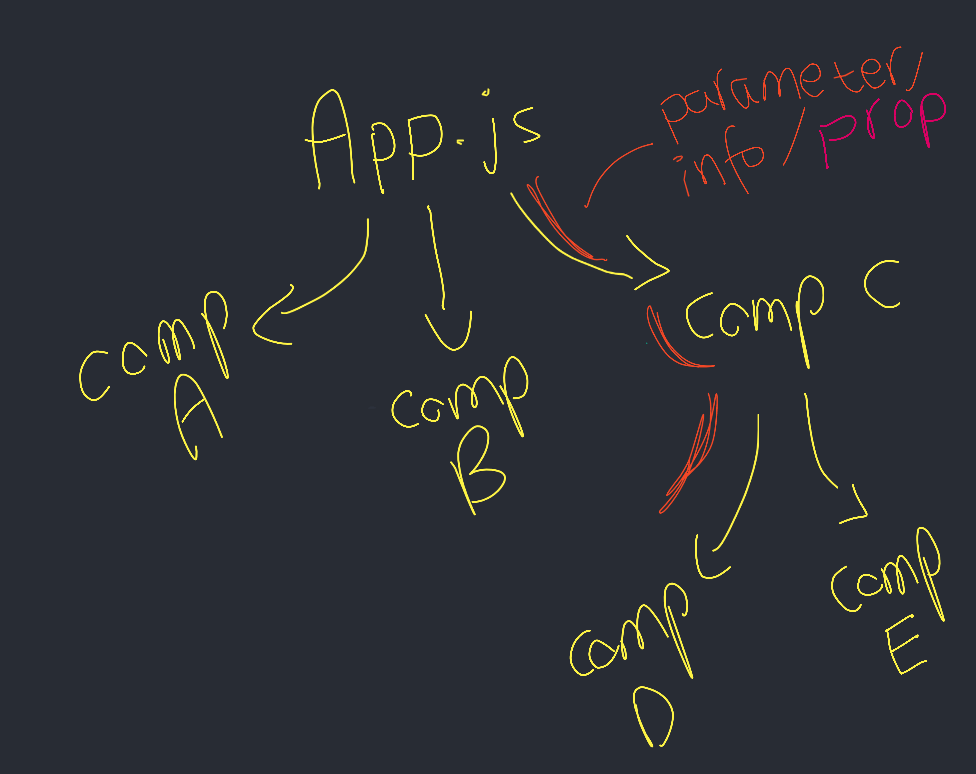 App.js
parameter/
info/prop
comp C
comp
A
comp
B
comp
D
comp
E